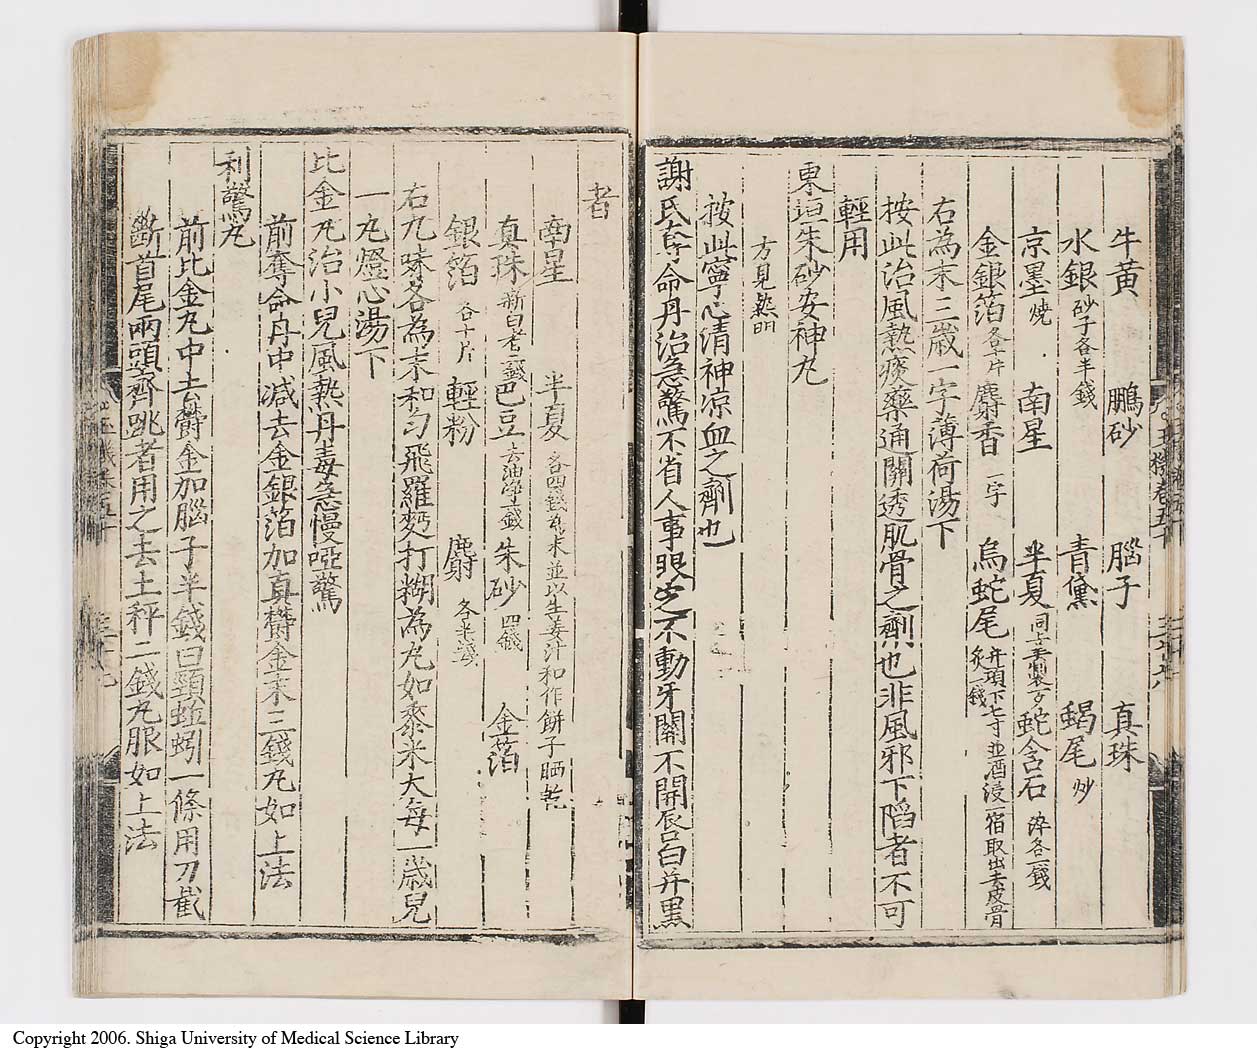 牛黃 鵬砂 腦子 真珠
水銀砂子各半錢 青黛 蝎尾炒
京墨燒 南星 半夏同上製 蛇含石淬各二錢
金銀箔各十片 麝香一字 烏蛇尾并項下七寸並酒浸一宿取出去皮骨炙一錢
右為末三歲一字薄荷湯下
按此治風熱痰藥通關透肌骨之劑也非風邪下陷者不可
輕用
東垣朱砂安神丸
方見熱門
按此寧心清神凉血之劑也
謝氏奪命丹治急驚不省人事眼定不動牙關不開唇白并黑
者
南星 半夏各四錢為末並以生姜汁和作餅子晒乾
真珠新白者二錢 巴豆去油淨一錢 朱砂四錢 金箔
銀箔各十片 輕粉 麝各半錢
右九味各為末和勻飛羅麪打糊為丸如黍米大每一歲兒
一丸燈心湯下
比金丸治小兒風熱丹毒急慢啞驚
前奪命丹中减去金銀箔加真欝金末三錢丸如上法
利驚丸
前比金丸中去欝金加腦子半錢白頸蚯蚓一條用刀截
斷首尾兩頭齊跳者用之去土秤二錢丸服如上法
Copyright 2006. Shiga University of Medical Science Library